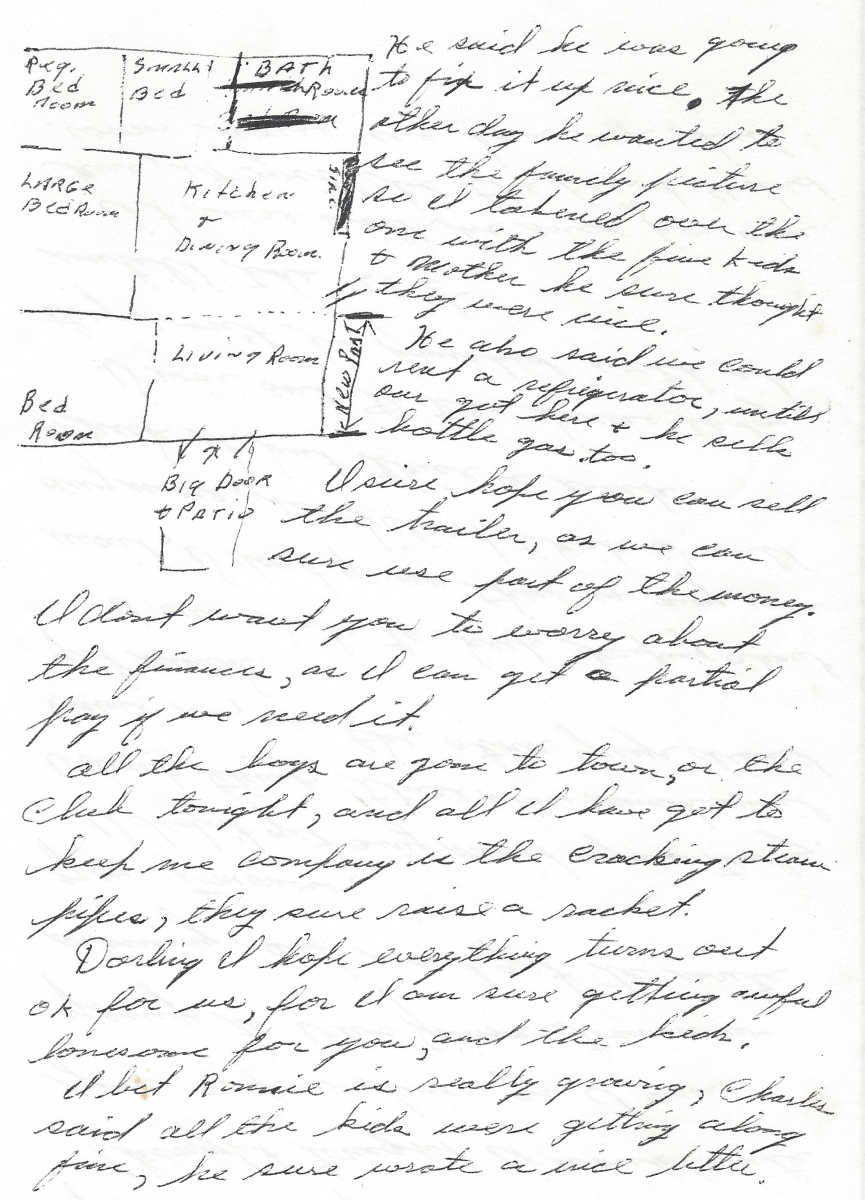 Reg.
Bed
room
Small
Bed
BATH
Room
LARGE
Bed Room
Kitchen
+
Dining Room
Sink
Living Room
New Part
Bed
Room
Big Door
+ PATIO
He said he was going
to fix it up nice. The
other day he wanted to
see the family picture
so I takened over the
one with the five kids
+ mother he sure thought
they were nice.
He also said we could
rent a refrigerator, until
our got here + he sells
bottle gas too.
I sure hope you can sell
the trailer, as we can
sure use part of the money.
I dont want you to worry about
the finances, as I can get a partial
pay if we need it.
all the boys are gone to town, or the
Club tonight, and all I have got to
keep me company is the cracking steam
pipes, they sure raise a racket.
Darling I hope everything turns out
ok for us, for I am sure getting awful
lonesome for you, and the kids.
I bet Ronnie is really growing, Charles
said all the kids were getting along
fine, he sure wrote a nice letter.